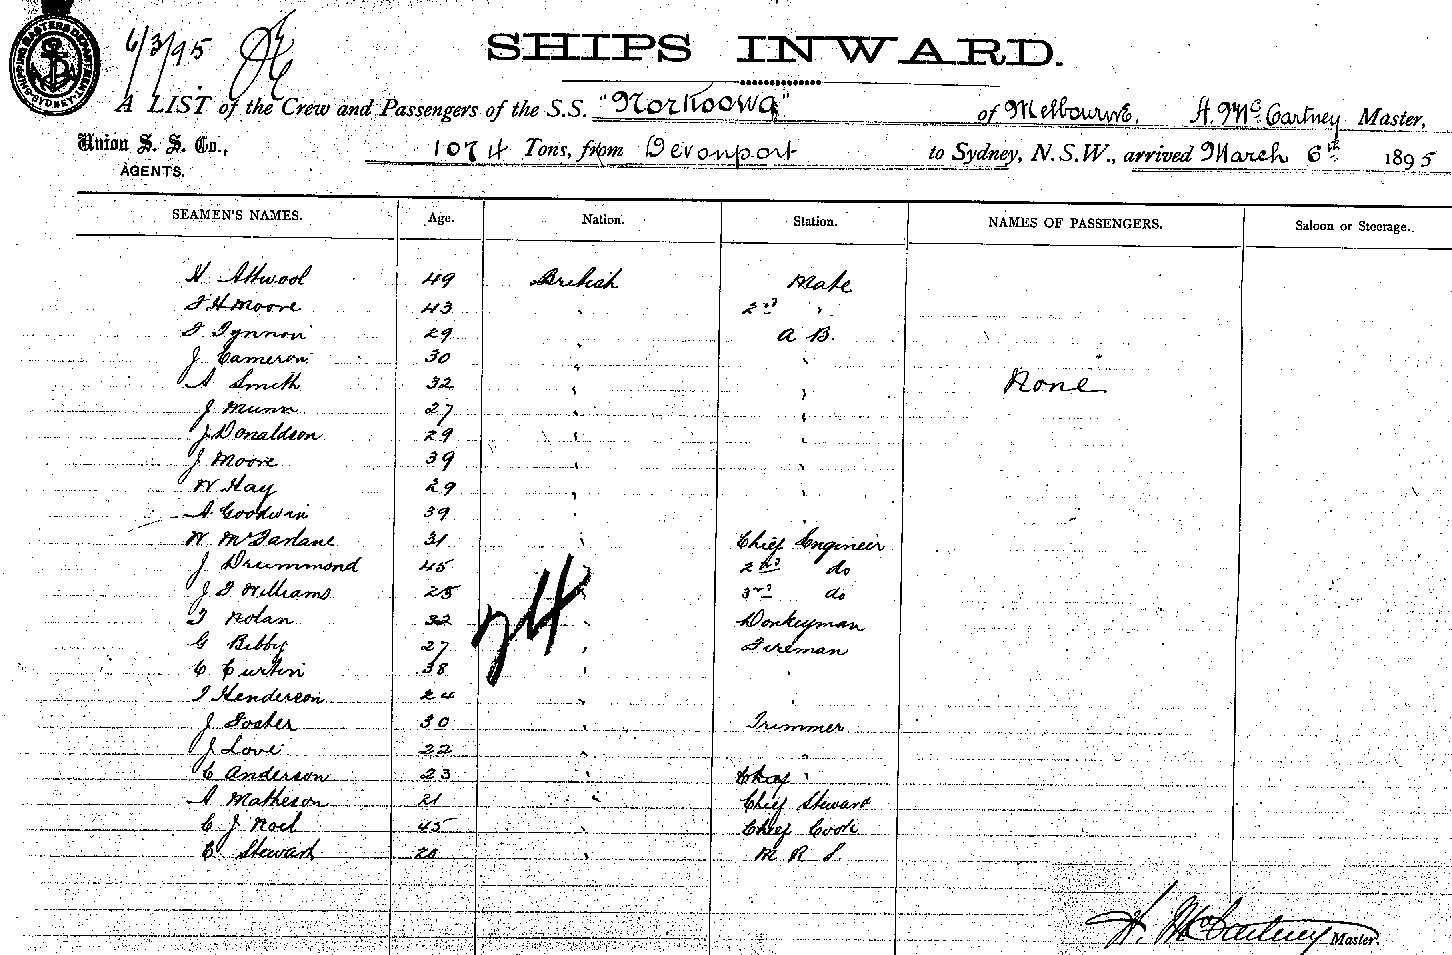 6/3/95
SHIPS INWARD.
A LIST of the Crew and Passengers of the S.S. "Norkoowa" of Melbourne, H. McCartney Master,
Union S. S. Co., AGENTS. 1074 Tons, from Devonport to Sydney, N.S.W., arrived March 6th 1895
SEAMEN'S NAMES. Age. Nation. Station. NAMES OF PASSENGERS. Saloon or Steerage.
H Attwood 49 British Mate
T H Moore 43 " 2nd "
29 " A B.
J Cameron 30 " "
A Smith 32 " " None
J Munn 27 " "
J Donaldson 29 " "
J Moore 39 " "
W Hay 29 " "
A Goodwin 39 "
W McFarlane 31 " Chief Engineer
J Drummond 45 2nd do
J T Williams 25 " 3rd do
T Nolan 32 " Donkeyman
G Bibby 27 " Fireman
C Curtin 38 " "
T Henderson 24 " "
J Foster 30 " Trimmer
J Love 22 " "
C Anderson 23 " "
A Matheson 21 " Chief Steward
C J Noel 45 " Chief Cook
C Stewart 20 " M R S.
24
H. McCartney Master.